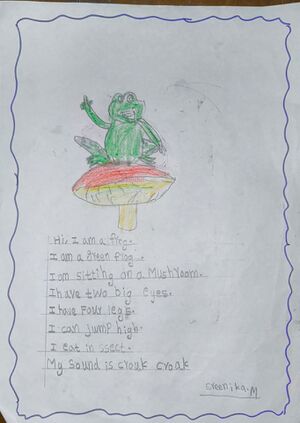 Hi, I am a frog.
I am a green frog.
I am sitting on a Mushroom.
I have two big eyes.
I have Four legs.
I can jump high.
I eat in ssect.
My Sound is crouk croak
Sreenika.M